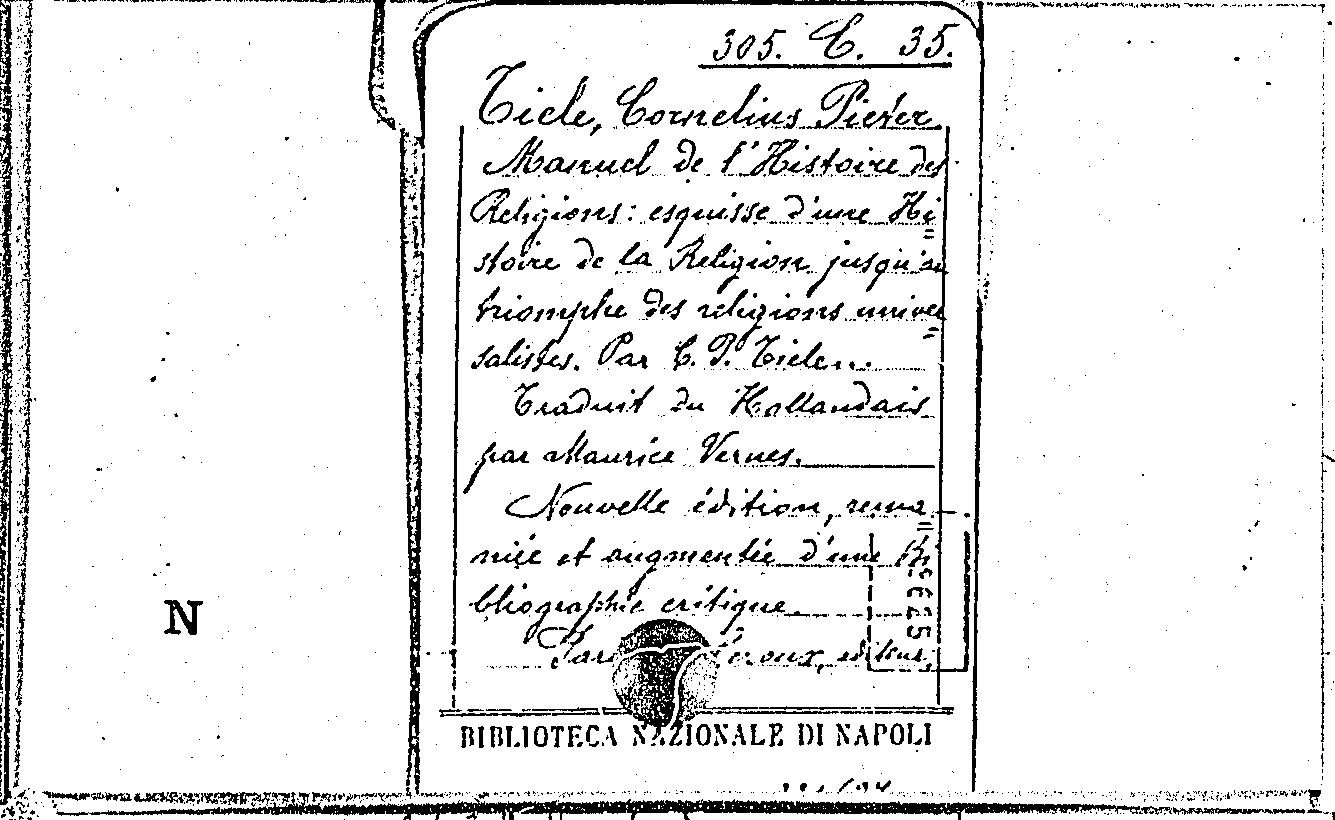 305. C. 35.
Tiele, Cornelius Pieter.
Manuel de l'Histoire des
Religions: esquisse d'une Hi
stoire de la Religion jusqu'au
triomphe des religions univer
salistes. Par C. P. Tiele.
Traduit du Hollandais
par Maurice Vernes.
Nouvelle édition, rema
niée et augmentée d'une Bi
bliographie critique.
Leroux, editeur,
BIBLIOTECA NAZIONALE DI NAPOLI
N